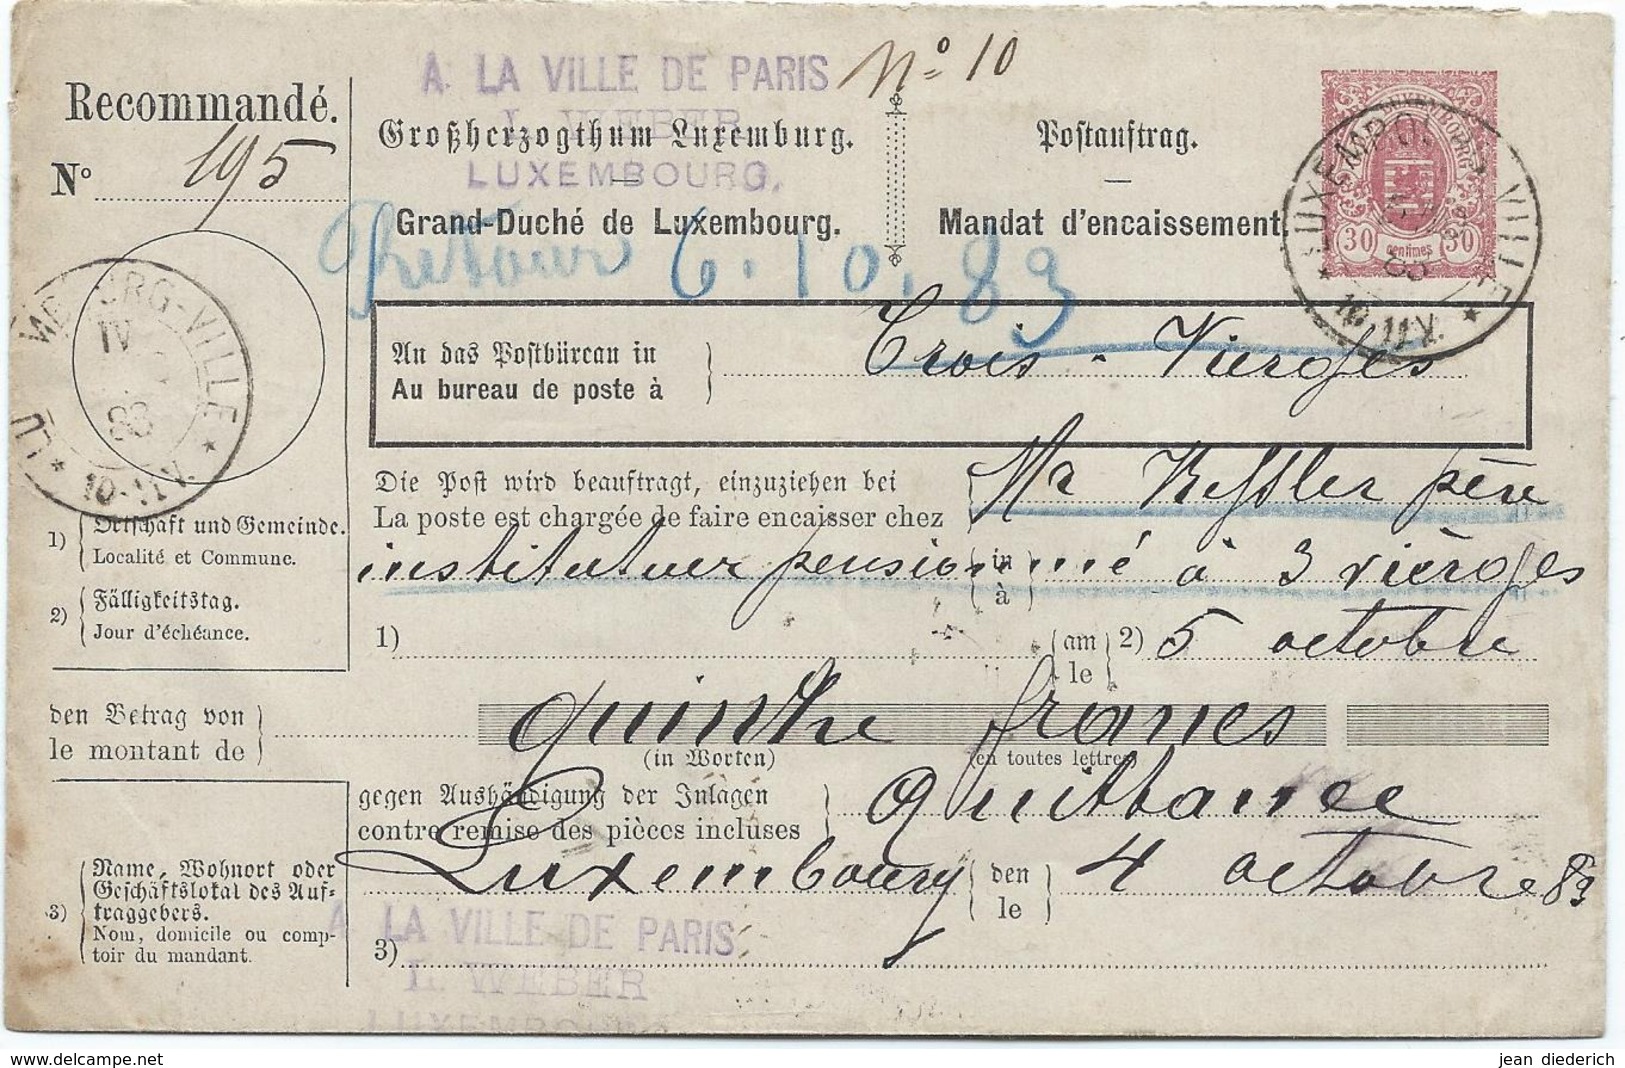 Recommandé.
N° 195
A LA VILLE DE PARIS
L. WEBER
LUXEMBOURG.
N° 10
Großherzogthum Luxemburg.
Grand-Duché de Luxembourg.
Postauftrag.
Mandat d'encaissement.
LUXEMBOURG
30 centimes 30
LUXEMBOURG VILLE
83
10-11 V.
Retour 6.10.83
LUXEMBOURG-VILLE
IV
83
10-11 V.
An das Postbüreau in
Au bureau de poste à
Trois-Vierges
Die Post wird beauftragt, einzuziehen bei
La poste est chargée de faire encaisser chez
Mr Keffler père
instituteur pensionné à 3 vierges
in
à
1) Ortschaft und Gemeinde.
Localité et Commune.
2) Fälligkeitstag.
Jour d'échéance.
1)
am
le
2) 5 octobre
den Betrag von
le montant de
quinze francs
(in Worten)
(en toutes lettres)
gegen Aushändigung der Inlagen
contre remise des pièces incluses
Quittance
Luxembourg
den
le
4 octobre 83
3) Name, Wohnort oder
Geschäftslokal des Auf-
traggebers.
Nom, domicile ou comp-
toir du mandant.
3)
A LA VILLE DE PARIS
L. WEBER
LUXEMBOURG
delcampe.net
jean diederich